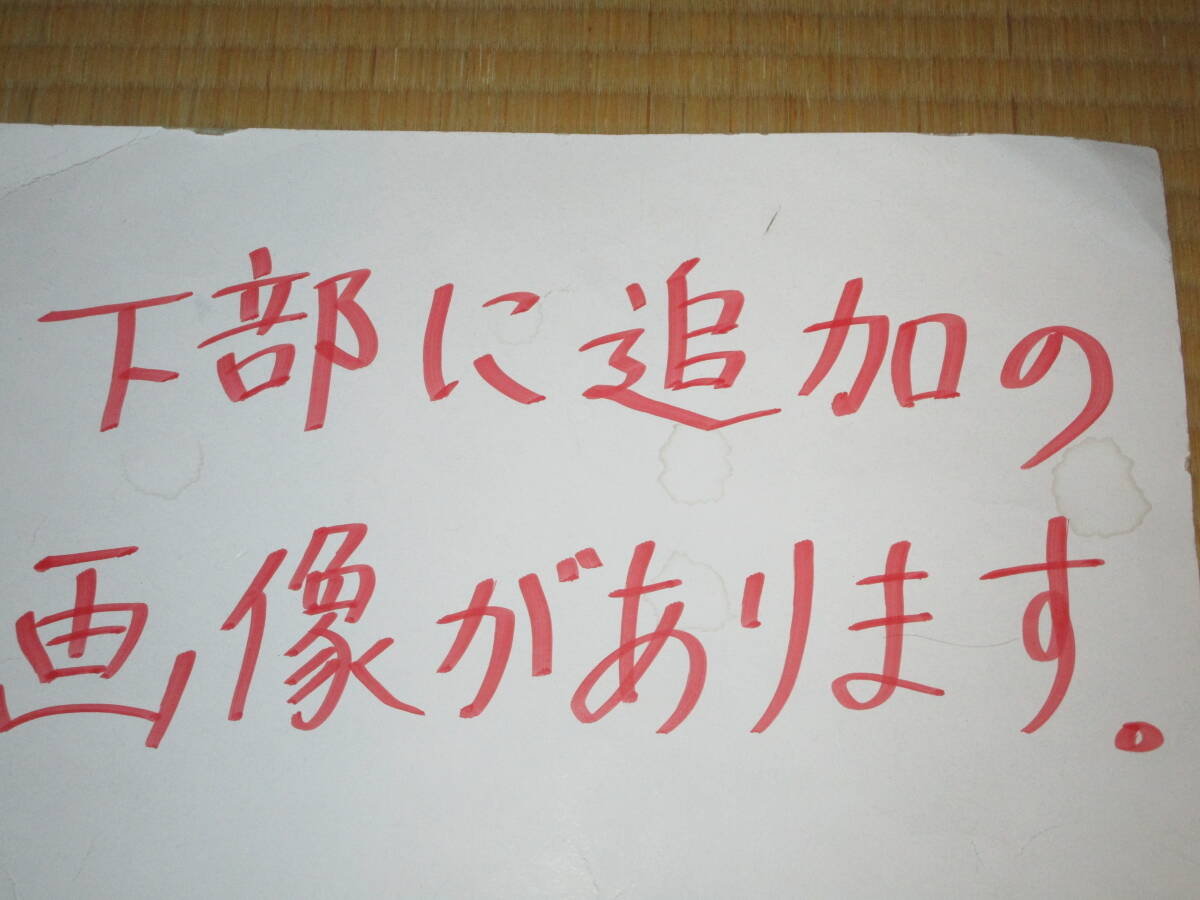 下部に追加の
画像があります。